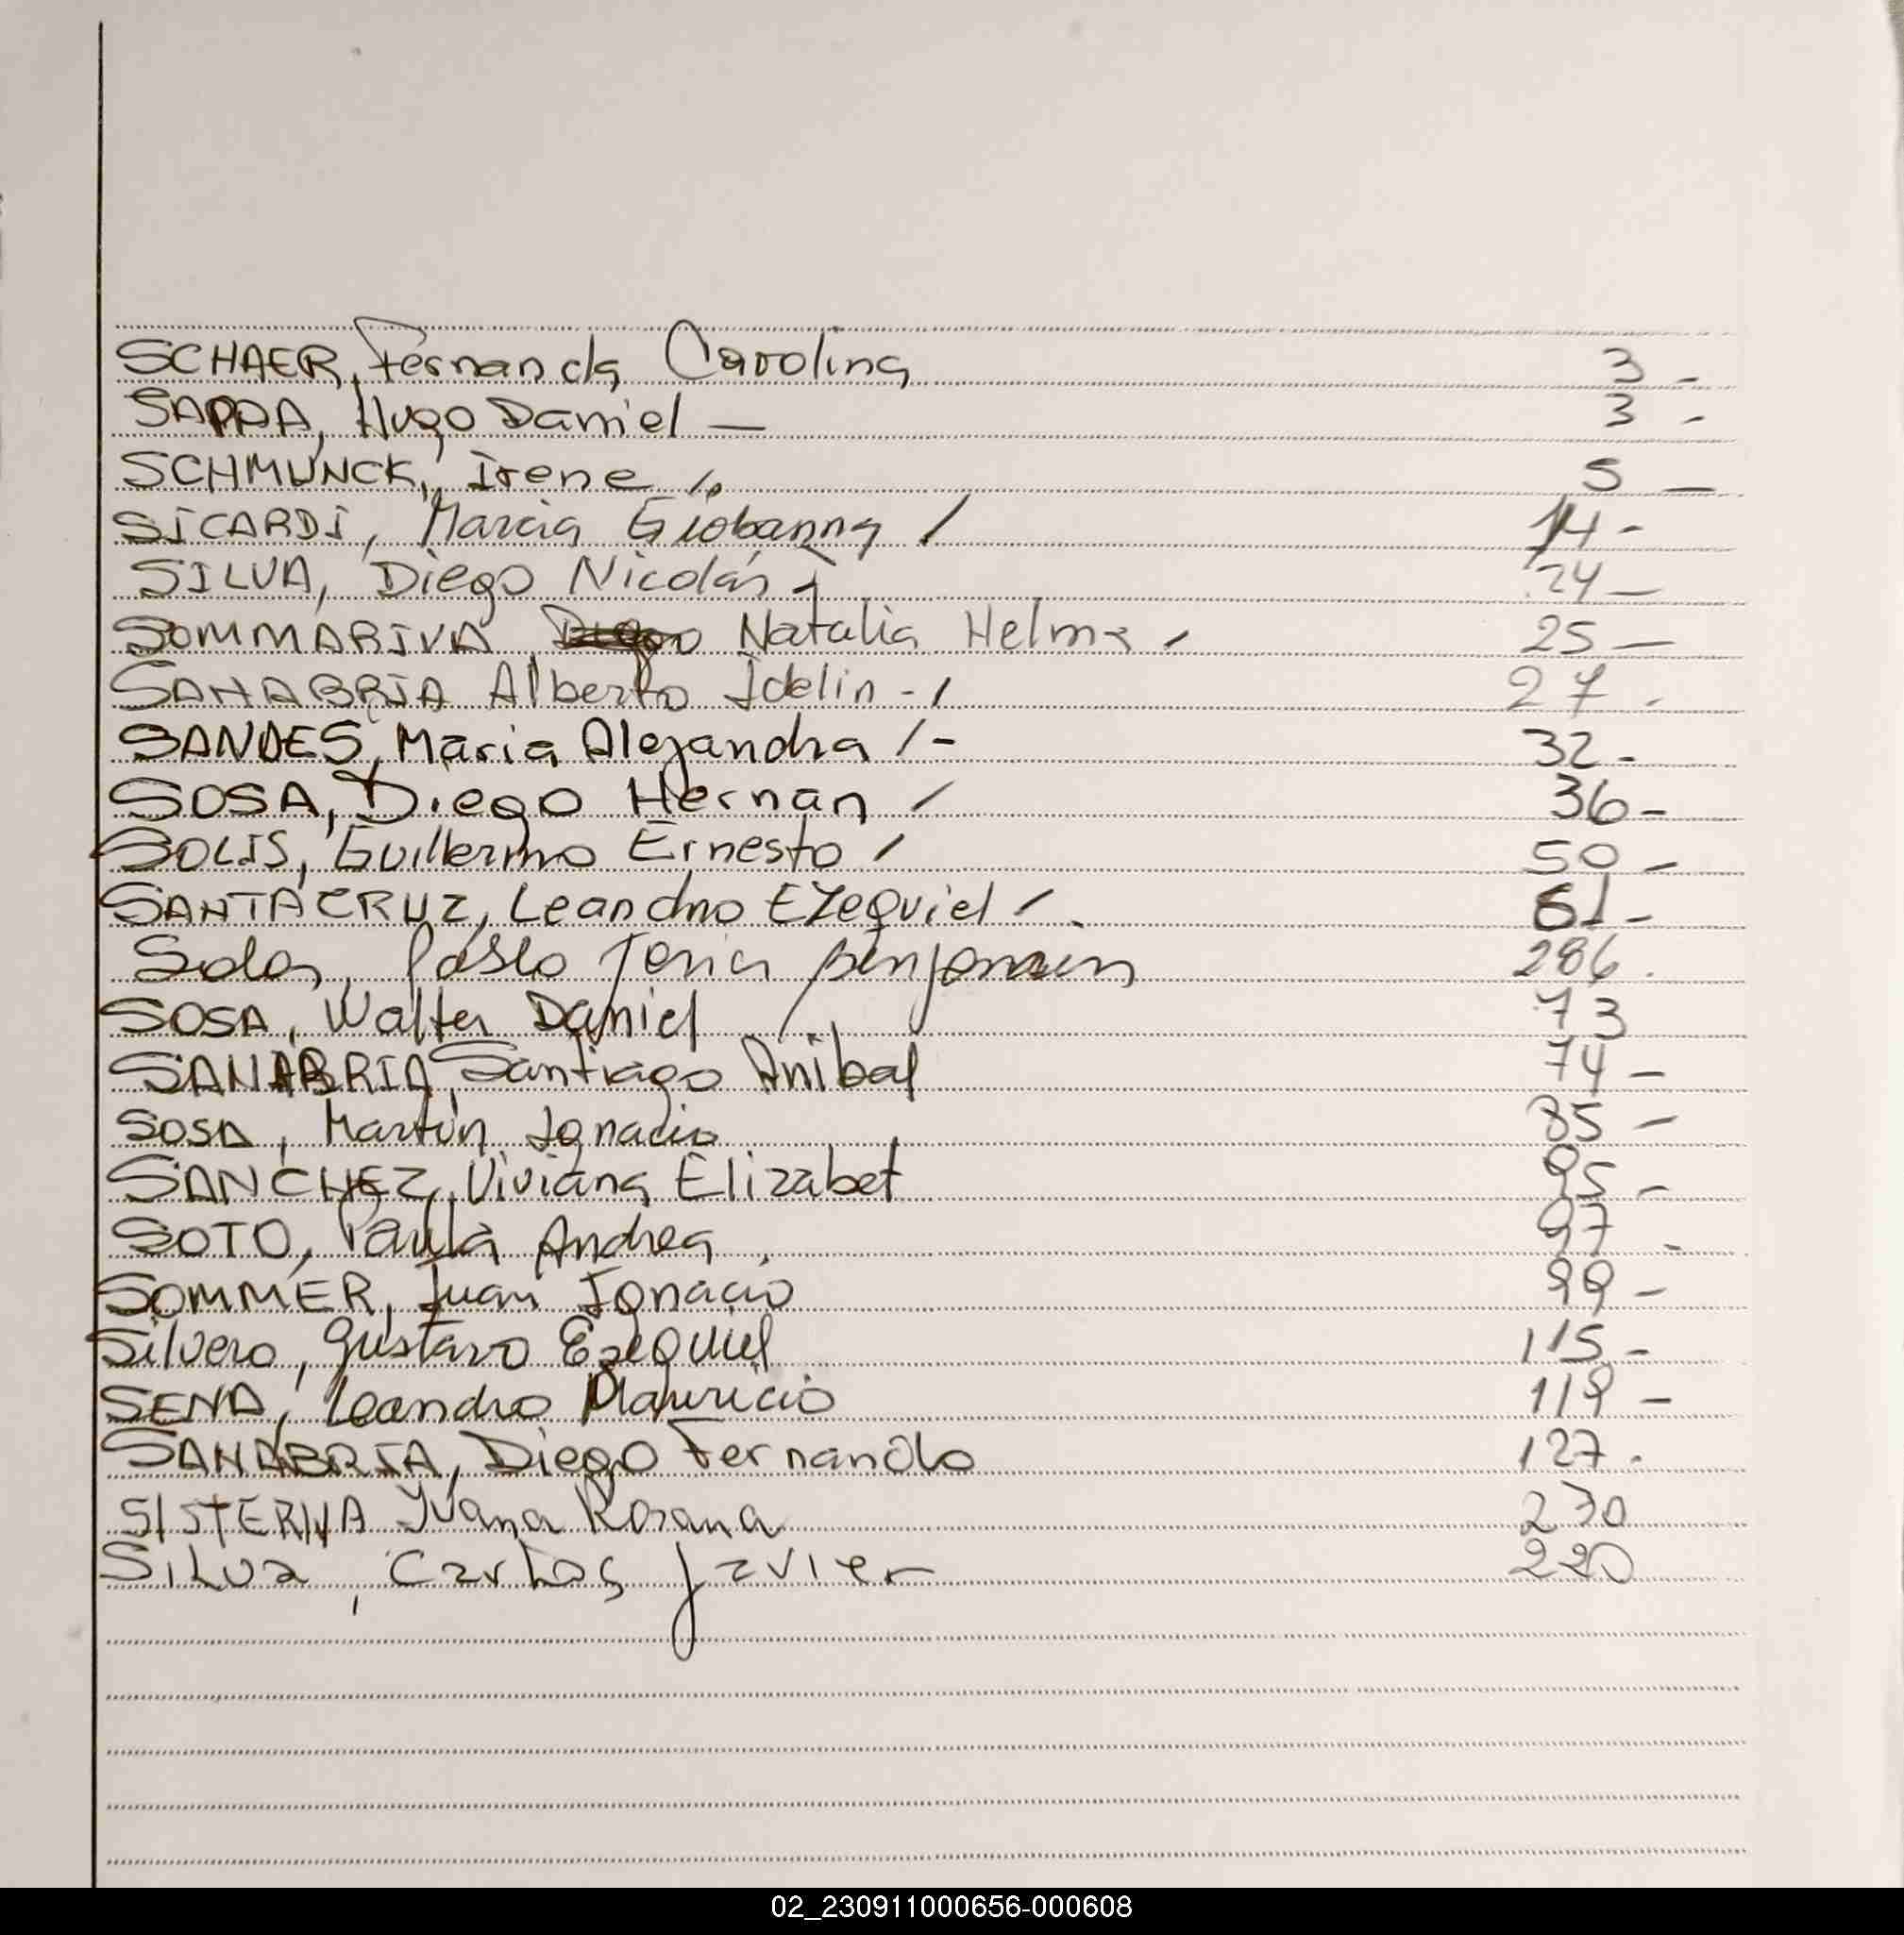 SCHAER, Fernanda Carolina 3 -
SAPPA, Hugo Daniel — 3 -
SCHMUNCK, Irene 5 —
SICARDI, Marcia Giobanna / 14 -
SILVA, Diego Nicolás 24 —
SOMMARIVA, Natalia Helma 25 —
SANABRIA Alberto Idelin - / 27 -
SANDES, Maria Alejandra / - 32 -
SOSA, Diego Hernan / 36 -
SOLIS, Guillermo Ernesto / 50 -
SANTACRUZ, Leandro EZequiel / 61 -
Pablo Benjamin 286.
SOSA, Walter Daniel 73
SANABRIA, Santiago Anibal 74 —
SOSA, Martin Ignacio 85 —
SANCHEZ, Viviana Elizabet 95 -
SOTO, Paula Andrea 97 -
SOMMER, Juan Ignacio 99 -
Silvero, Gustavo Ezequiel 115 -
SENA, Leandro Mauricio 119 —
SANABRIA, Diego Fernando 127 .
SISTERNA Ivana Rosana 230
SiLva, Carlos Javier 220
02_230911000656-000608